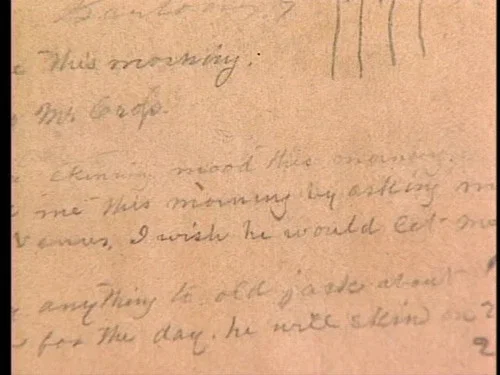 this morning.
Mr
skinning mood this morning.
me this morning by asking
I wish he would let me
anything to old about
for the day. he will skin